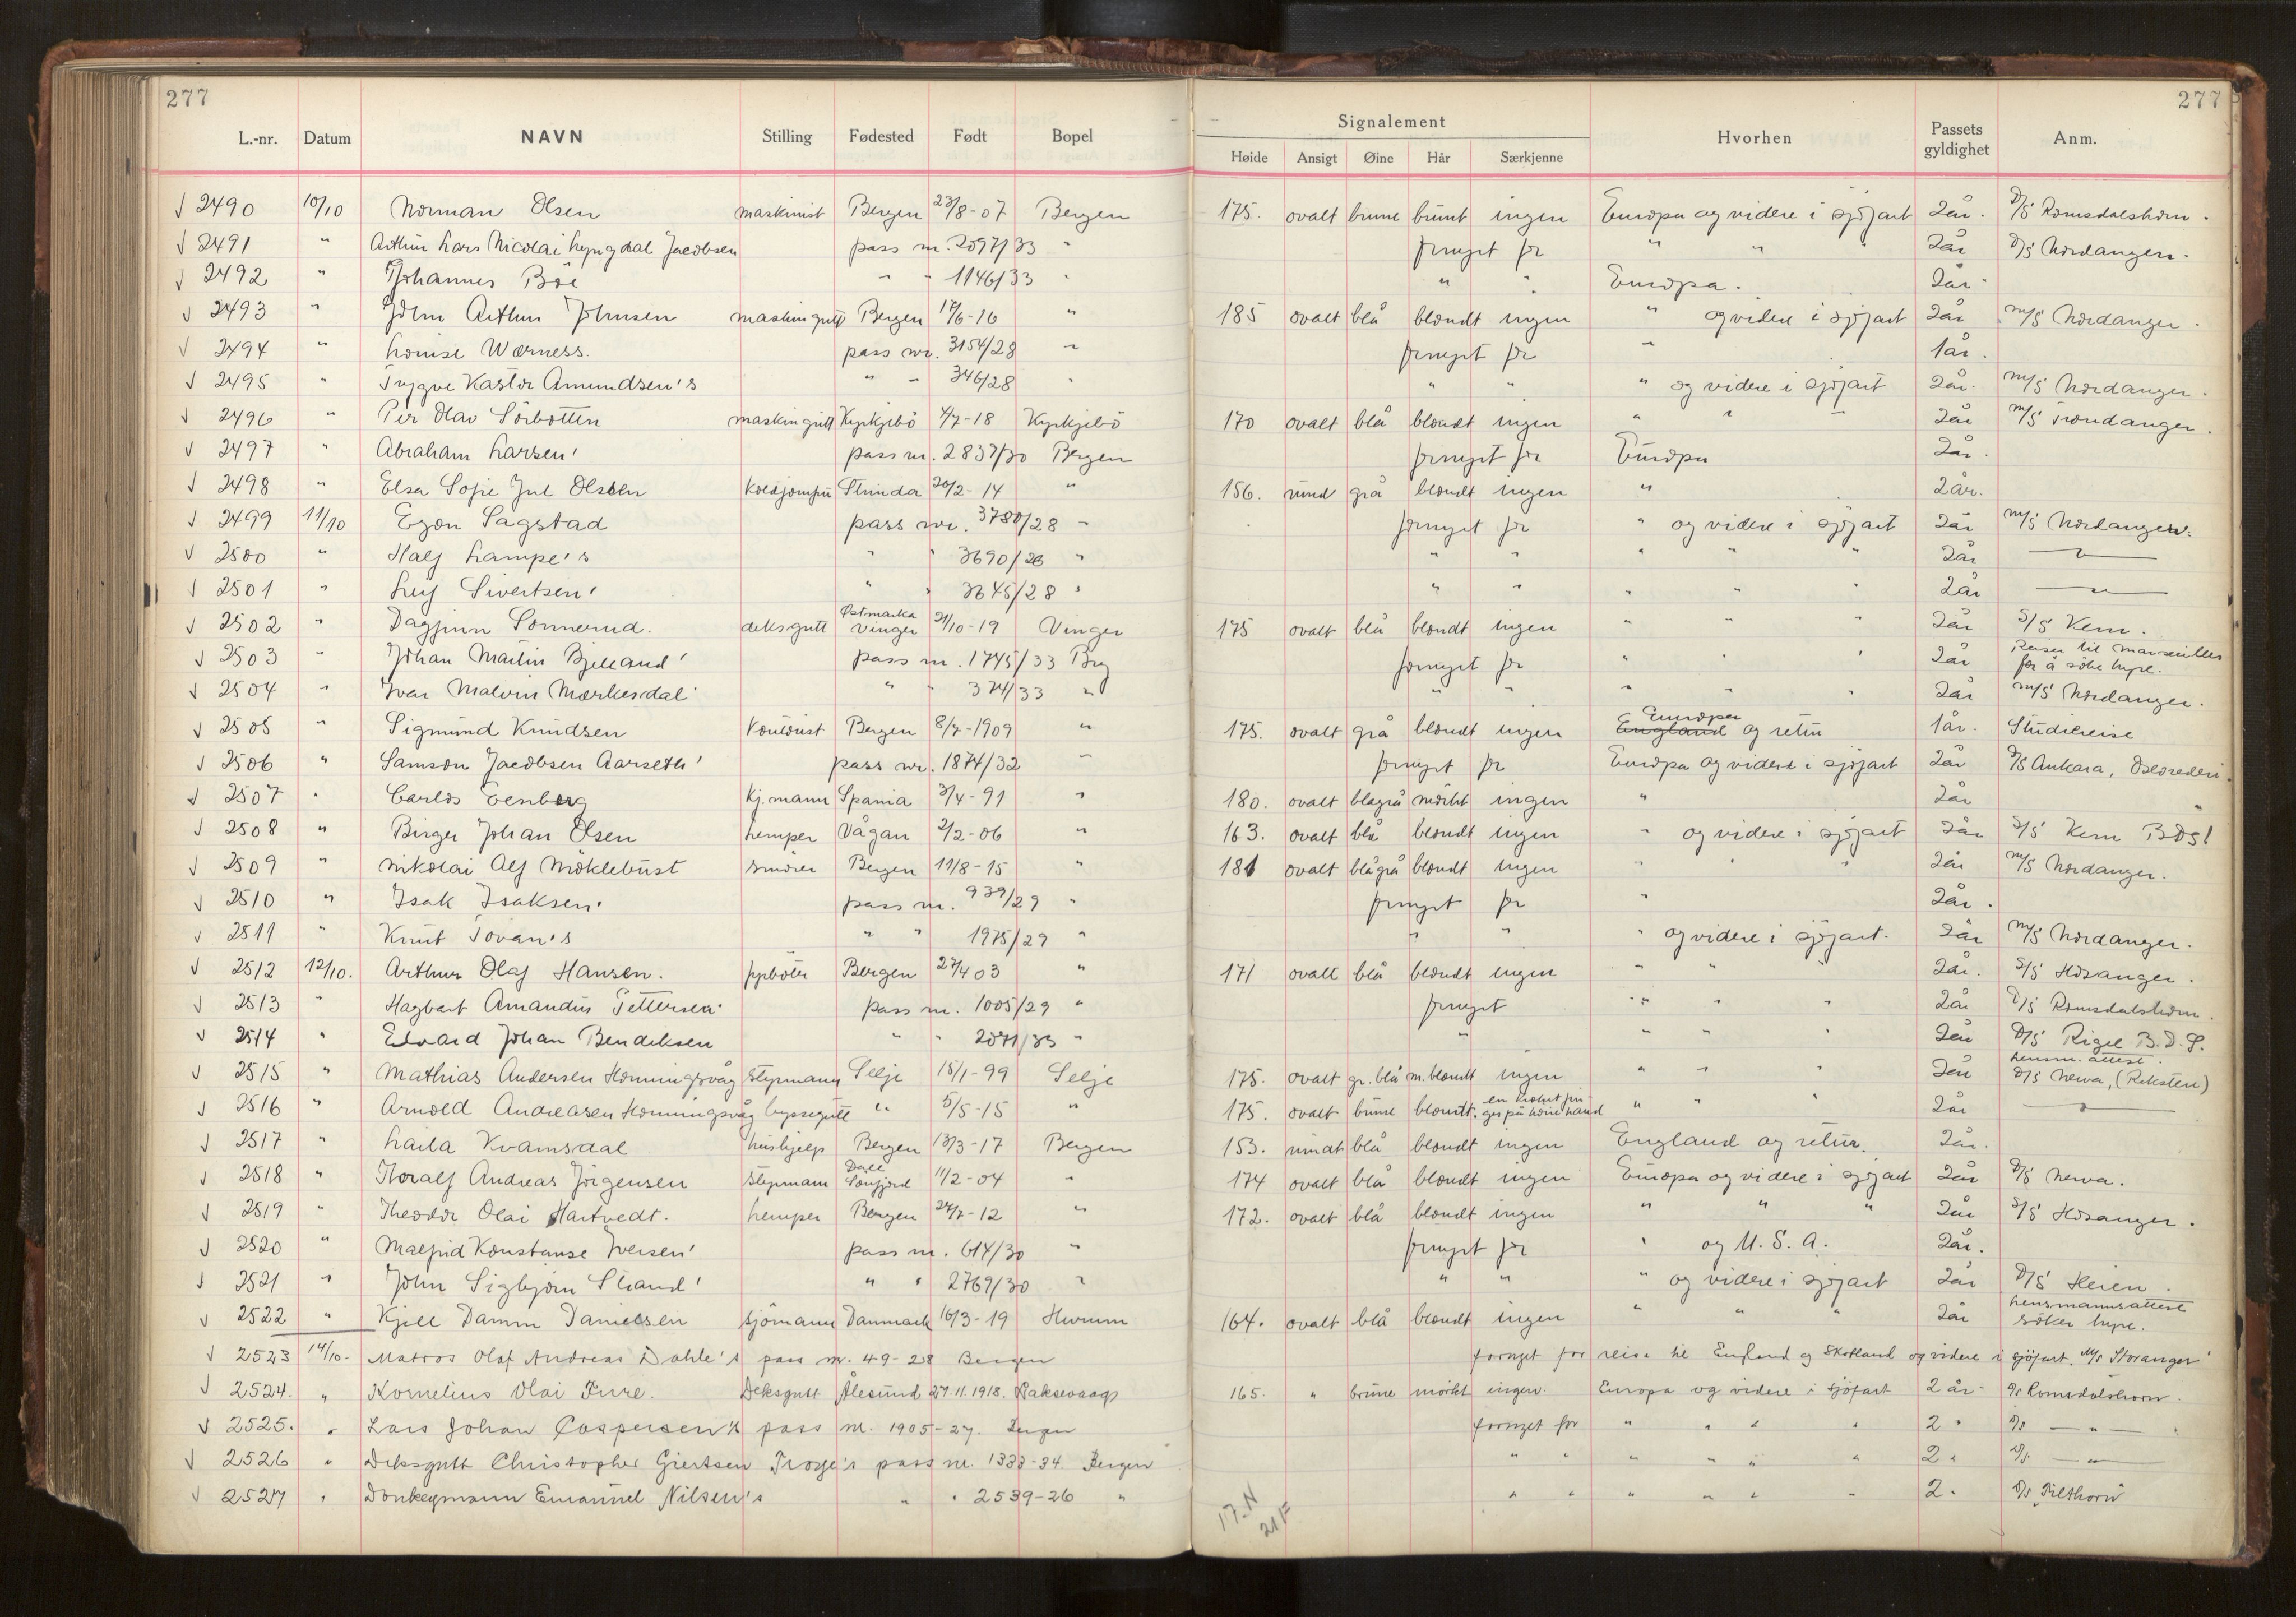 277 277
L.-nr. Datum NAVN Stilling Fødested Født Bopel Signalement Hvorhen Passets gyldighet Anm.
Høide Ansigt Øine Hår Særkjenne
√ 2490 10/10 Norman Olsen maskinist Bergen 23/8-07 Bergen 175. ovalt brune brunt ingen Europa og videre i sjøfart 2år. D/S Romsdalshorn.
√ 2491 " Arthur Lars Nicolai Lyngdal Jacobsen pass nr. 2097/33 " fornyet for " " " 2år D/S Nordangen.
√ 2492 " Johannes Böe " " 1146/33 " " " Europa. 2år.
√ 2493 " John Arthur Johnsen maskingutt Bergen 17/6-16 " 185 ovalt blå blondt ingen " og videre i sjøfart 2år m/S Nordanger.
√ 2494 " Louise Wærness. pass nr. 3154/28 " fornyet for " 1år.
√ 2495 " Trygve Kastor Amundsen's " " 346/28 " " " " og videre i sjøfart 2år. m/S Nordanger.
√ 2496 " Per Olav Sörbotten maskingutt Kyrkjebö 4/7-18 Kyrkjebö 170 ovalt blå blondt ingen " " " 2år m/S Trondanger.
√ 2497 " Abraham Larsen' pass nr. 2837/30 Bergen fornyet for Europa 2år.
√ 2498 " Elsa Sofie Jul Olsen Koldjomfru Strinda 20/2-14 " 156. rund grå blondt ingen " 2år.
√ 2499 11/10 Egon Sagstad pass nr. 3780/28 " fornyet for " og videre i sjøfart 2år m/S Nordanger.
√ 2500 " Half Lampe's " " 3690/28 " " " " " " 2år —"—
√ 2501 " Leif Sivertsen' " " 3645/28 " " " " " " 2år —"—
√ 2502 " Dagfinn Sonnerud. deksgutt Østmarka Vinger 21/10-19 Vinger 175 ovalt blå blondt ingen " " " 2år S/S Kem.
√ 2503 " Johan Martin Bjelland' pass nr. 1745/33 Brg fornyet for " " " 2år Reiser til Marseilles for å söke hyre.
√ 2504 " Ivar Malvin Mærkesdal' " " 374/33 " " " " " " 2år m/S Nordanger.
√ 2505 " Sigmund Knudsen Kontorist Bergen 8/7-1909 " 175. ovalt grå blondt ingen England Europa og retur 1år. Studiereise
√ 2506 " Samson Jacobsen Aarseth' pass nr. 1874/32 " fornyet for Europa og videre i sjøfart 2år D/S Ankara, Oslorederi.
√ 2507 " Carlos Evenberg Kj.mann Spania 3/4-91 " 180. ovalt blågrå mörkt ingen " 2år "
√ 2508 " Birger Johan Olsen Lemper Vågan 2/2-06 " 163. ovalt blå blondt ingen " og videre i sjøfart 2år S/S Kem BDS!
√ 2509 " Nikolai Alf Möklebust smörer Bergen 11/8-15 " 181 ovalt blågrå blondt ingen " " " 2år m/S Nordanger.
√ 2510 " Isak Isaksen' pass nr. 939/29 " fornyet for " 2år.
√ 2511 " Knut Tovan's " " 1975/29 " " " " og videre i sjøfart. 2år m/S Nordanger.
√ 2512 12/10. Arthur Olaf Hansen. fyrböter Bergen 27/4 03 " 171 ovalt blå blondt ingen " " 2år. S/S Hosanger.
√ 2513 " Hagbart Amandus Pettersen' pass nr. 1005/29 " fornyet " " " 2år D/S Romsdalshorn.
√ 2514 " Edvard Johan Bendiksen " " 2071/33 " " " " " 2år D/S Rigel B.D.S.
√ 2515 " Mathias Andersen Hornningsvåg styrmann Selje 15/1-99 Selje 175. ovalt gr.blå m.blondt ingen " " " 2år Lensm. attest. D/S Nerva, (Reksten)
√ 2516 " Arnold Andreasen Hornningsvåg byssegutt " 5/5-15 " 175. ovalt brune blondt. en kroket finger på höire hånd " " " 2år —"—
√ 2517 " Laila Kvamsdal hushjelp Bergen 13/3-17 Bergen 153. rundt blå blondt ingen England og retur. 2år.
√ 2518 " Thoralf Andreas Jörgensen styrmann Dale Sunfjord 11/2-04 " 174 ovalt blå blondt ingen Europa og videre i sjøfart 2år D/S Nerva.
√ 2519 " Theodor Olai Hartvedt. Lemper Bergen 24/7-12 " 172. ovalt blå blondt ingen " " " 2år S/S Hosanger.
√ 2520 " Malfrid Konstanse Iversen' pass nr. 614/30 " fornyet for " og U.S.A. 2år.
√ 2521 " John Sigbjörn Strand' " " 2769/30 " " " " og videre i sjøfart 2år D/S Heien.
√ 2522 " Kjell Damm Danielsen sjömann Danmark 16/3-19 Hurum 164. ovalt blå blondt ingen " " " 2år Lensmannsattest söker hyre.
√ 2523 14/10- Matros Olaf Andreas Dahle's pass nr. 49-28 Bergen fornyet for reise til England og Skotland og videre i sjöfart. M/s Storanger
√ 2524. " Kornelius Olai Fure. Deksgutt Ålesund 27.11.1918. Laksevaag 165. " brune mörkt ingen. Europa og videre i sjöfart 2 år- D/s Romsdalshorn.
√ 2525. " Lars Johan Caspersen's pass nr. 1905-27. Bergen fornyet for " " " " 2 " D/s — " —
√ 2526 " Deksgutt Christopher Giertsen Troye's pass nr. 1333-34 Bergen " " " " " " 2 " D/s — " —
√ 2527 " Donkeymann Emanuel Nilsen's " " 2539-26 " " " " " " " 2 " D/s "Pilthorn"
17.N
21F